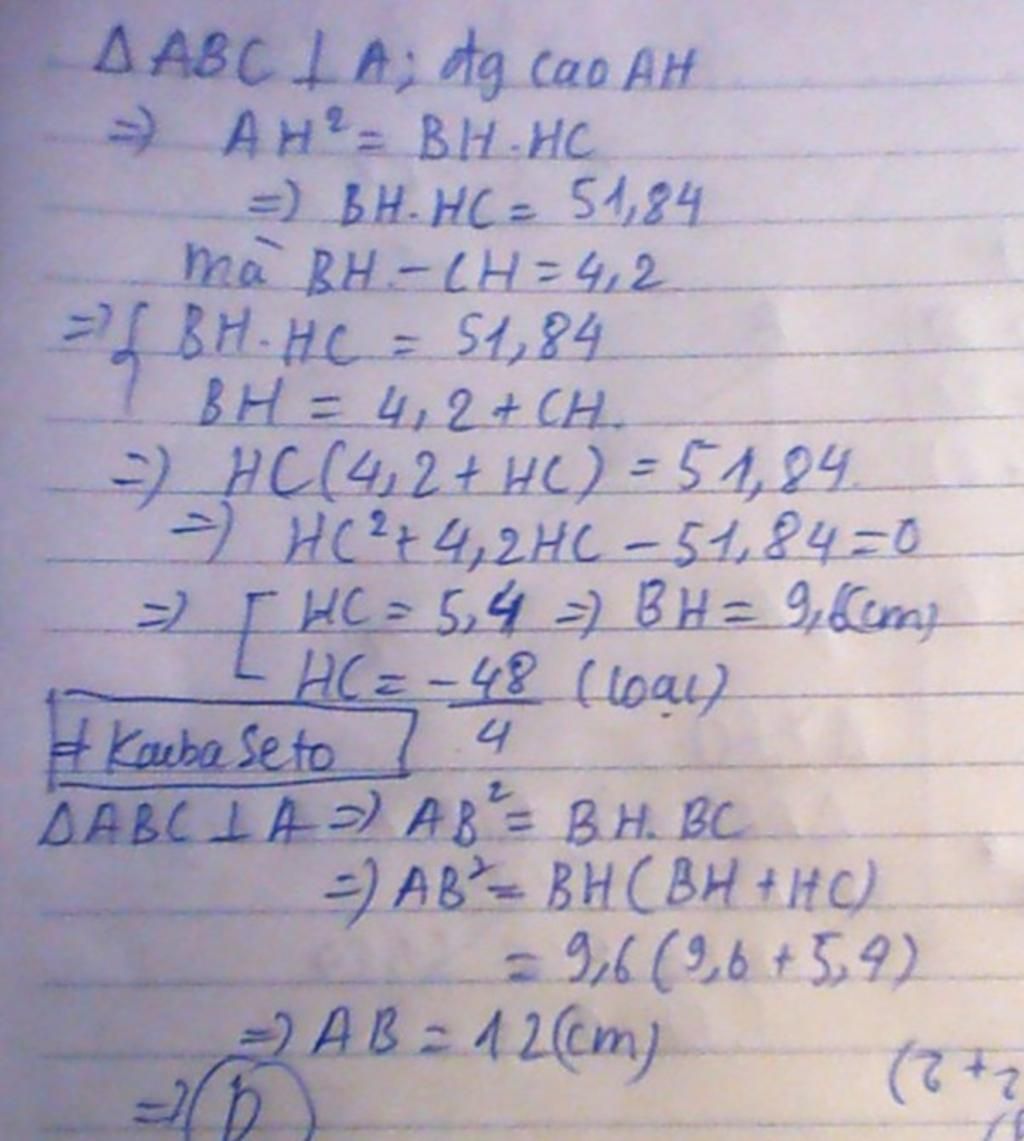 ΔABC ⊥ A; đg cao AH
=> AH² = BH.HC
=> BH.HC = 51,84
mà BH - CH = 4,2
=> { BH.HC = 51,84
BH = 4,2 + CH.
=> HC(4,2 + HC) = 51,84.
=> HC² + 4,2HC - 51,84 = 0
=> [ HC = 5,4 => BH = 9,6(cm)
HC = -48/4 (loại)
# KaibaSeto
ΔABC ⊥ A => AB² = BH.BC
=> AB² = BH(BH + HC)
= 9,6(9,6 + 5,4)
=> AB = 12(cm)
=> D